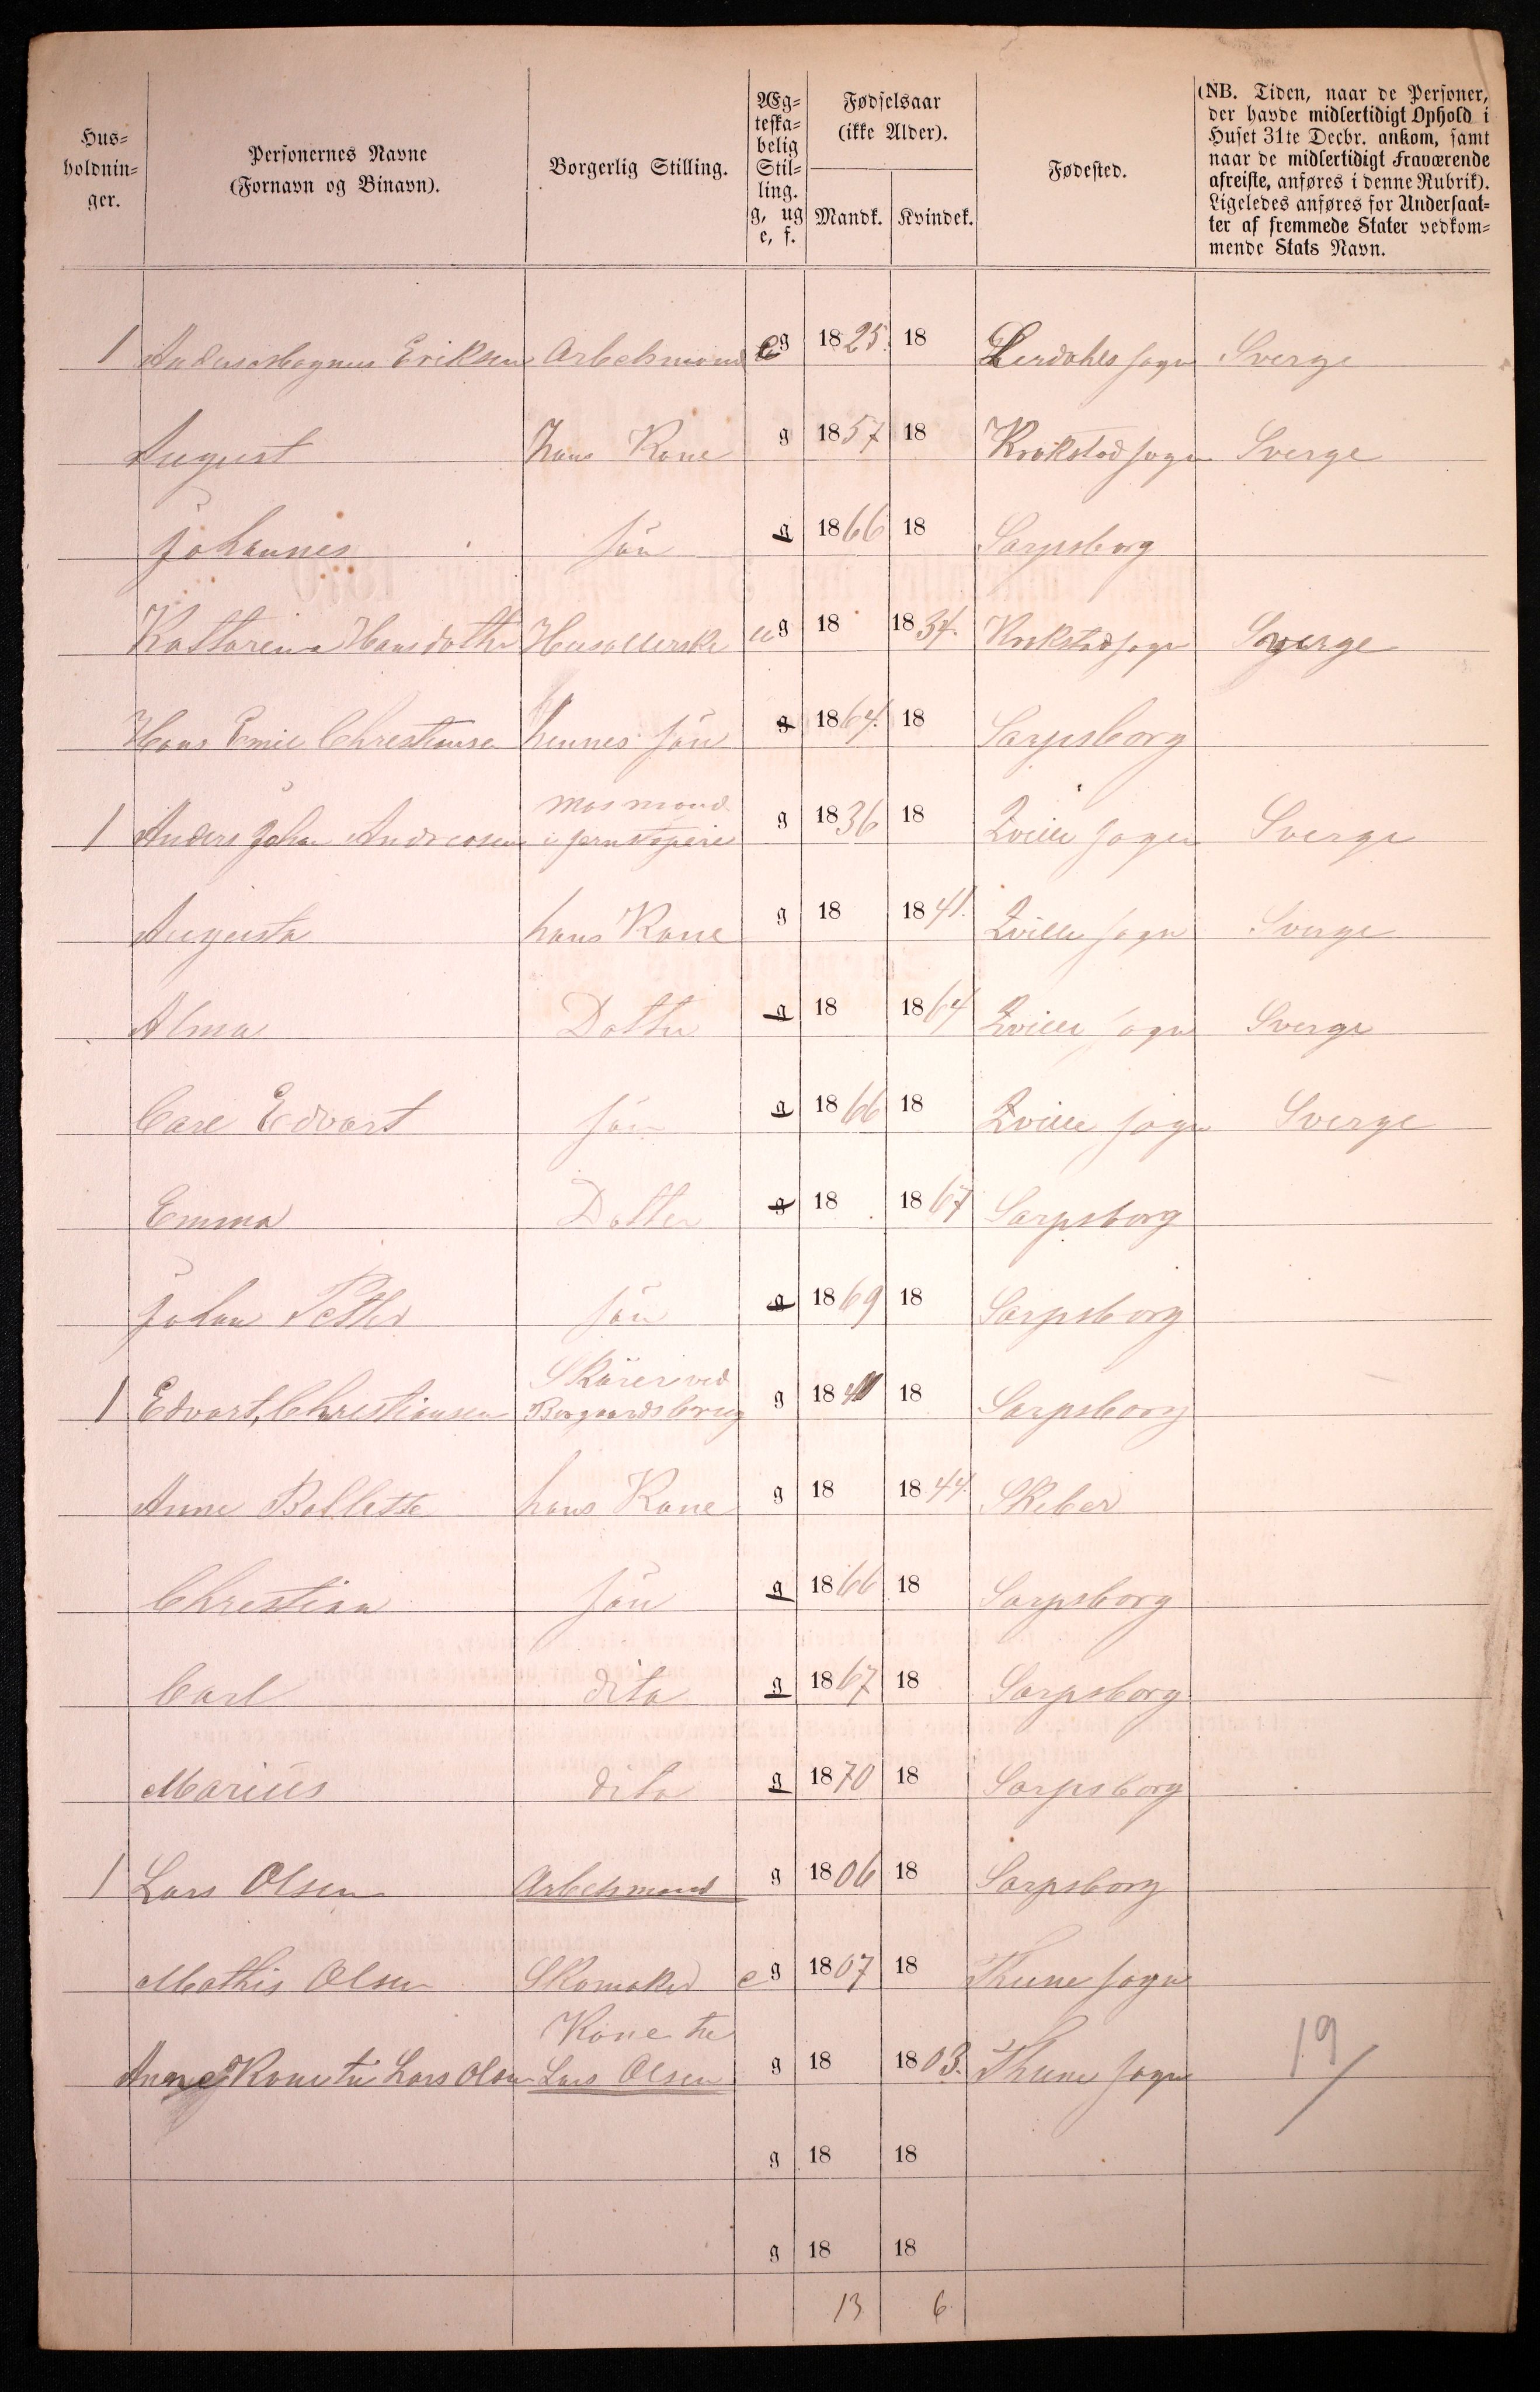 Hus=
holdnin=
ger.
Personernes Navne
(Fornavn og Binavn).
Borgerlig Stilling.
Æg=
teska=
belig
Stil=
ling.
g, ug
e, f.
Fødselsaar
(ikke Alder).
Mandk. Kvindek.
Fødested.
(NB. Tiden, naar de Personer,
der havde midlertidigt Ophold i
Huset 31te Decbr. ankom, samt
naar de midlertidigt Fraværende
afreiste, anføres i denne Rubrik).
Ligeledes anføres for Undersaat=
ter af fremmede Stater vedkom=
mende Stats Navn.
1 Anders Magnus Eriksen Arbeidsmand e g 1825. 18 Lerdahls sogn Sverge
August hans Kone g 1857 18 Krokstad sogn Sverge
Johannes sön g 1866 18 Sarpsborg
Kattarina Hansdatter ug 18 1834. Krokstad sogn Sverge
Hans Emil Christiansen hennes sön g 1864. 18 Sarpsborg
1 Anders Johan Andreasen Masmand
i jernstøperi g 1836 18 Qville sogn Sverge
Augusta hans Kone g 18 1841. Qville sogn Sverge
Alma Dotter g 18 1864 Qville sogn Sverge
Carl Edvart sön g 1866 18 Qville sogn Sverge
Emma Dotter g 18 1867 Sarpsborg
Johan Petter sön g 1869 18 Sarpsborg
1 Edvart Christiansen Skärer ved
Borgaards brug g 184 18 Sarpsborg
Anne Bollette hans Kone g 18 1844. Skeber
Christian sön g 1866 18 Sarpsborg
Carl dito g 1867 18 Sarpsborg
Marius dito g 1870 18 Sarpsborg
1 Lars Olsen Arbeidsmand g 1806 18 Sarpsborg
Mathis Olsen Skomaker e g 1807 18 Thune sogn
Anne Kone til Lars Olsen Kone til
Lars Olsen g 18 1803. Thune sogn 19/
g 18 18
g 18 18
13 6